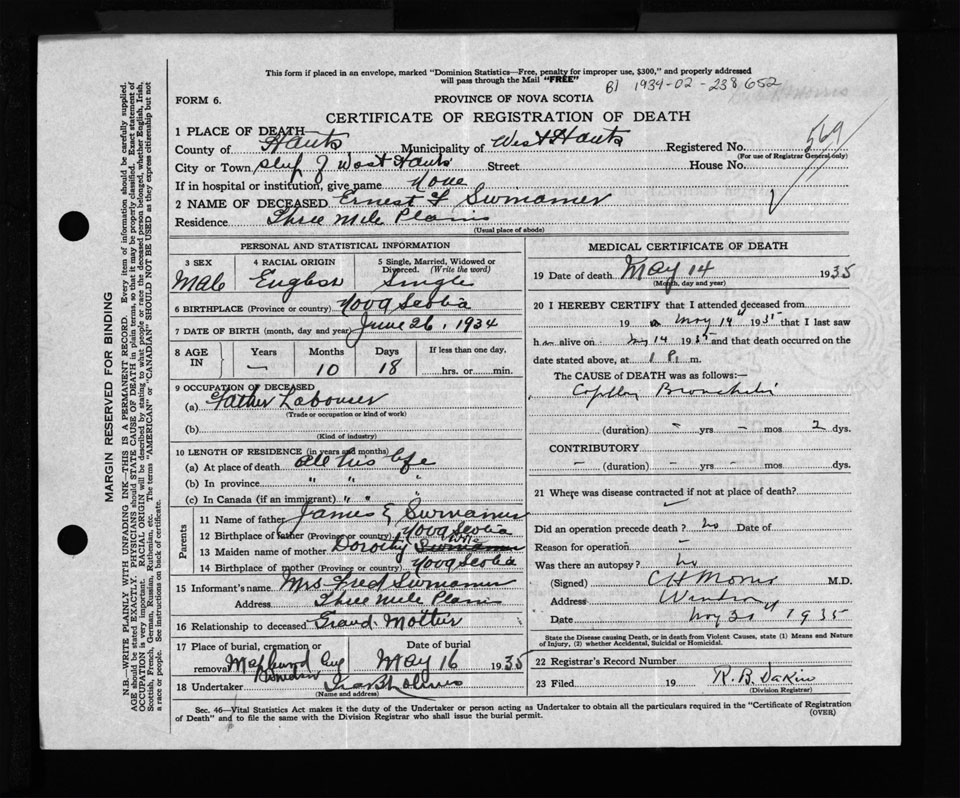 This form if placed in an envelope, marked "Dominion Statistics—Free, penalty for improper use, $300," and properly addressed
will pass through the Mail "FREE"
B) 1934-02-238652
FORM 6.
PROVINCE OF NOVA SCOTIA
CERTIFICATE OF REGISTRATION OF DEATH
569
1 PLACE OF DEATH—
County of Hants Municipality of West Hants Registered No.
(For use of Registrar General only)
City or Town of West Hants Street House No.
If in hospital or institution, give name None
2 NAME OF DECEASED Ernest F Swinamer
Residence Three Mile Plains
(Usual place of abode)
PERSONAL AND STATISTICAL INFORMATION
3 SEX 4 RACIAL ORIGIN 5 Single, Married, Widowed or Divorced. (Write the word)
Male English Single
6 BIRTHPLACE (Province or country) Nova Scotia
7 DATE OF BIRTH (month, day and year) June 26, 1934
8 AGE IN Years Months Days If less than one day,
— 10 18 hrs. or min.
9 OCCUPATION OF DECEASED
(a) Father Labourer
(Trade or occupation or kind of work)
(b)
(Kind of industry)
10 LENGTH OF RESIDENCE (in years and months)
(a) At place of death all his life
(b) In province " " "
(c) In Canada (if an immigrant) " " "
Parents
11 Name of father James E Swinamer
12 Birthplace of father (Province or country) Nova Scotia
13 Maiden name of mother Dorothy
14 Birthplace of mother (Province or country) Nova Scotia
15 Informant's name Mrs Fred Swinamer
Address Three Mile Plains
16 Relationship to deceased Grand Mother
17 Place of burial, cremation or removal Date of burial
Maplewood Cem Windsor May 16 1935
18 Undertaker Ira B
(Name and address)
MEDICAL CERTIFICATE OF DEATH
19 Date of death May 14 1935
(Month, day and year)
20 I HEREBY CERTIFY that I attended deceased from
19 May 14 1935 that I last saw
h alive on May 14 1935 and that death occurred on the
date stated above, at 1 P. m.
The CAUSE of DEATH was as follows:—
Capillary Bronchitis
(duration) – yrs – mos 2 dys.
CONTRIBUTORY
– (duration) – yrs. – mos. dys.
21 Where was disease contracted if not at place of death?
Did an operation precede death? no Date of
Reason for operation –
Was there an autopsy? no
(Signed) C H Morris M.D.
Address Windsor
Date 1935
State the Disease causing Death, or in death from Violent Causes, state (1) Means and Nature
of Injury, (2) whether Accidental, Suicidal or Homicidal.
22 Registrar's Record Number
23 Filed 19 R. B. Dakin
(Division Registrar)
Sec. 46—Vital Statistics Act makes it the duty of the Undertaker or person acting as Undertaker to obtain all the particulars required in the "Certificate of Registration
of Death" and to file the same with the Division Registrar who shall issue the burial permit.
(OVER)
MARGIN RESERVED FOR BINDING
N.B.—WRITE PLAINLY WITH UNFADING INK—THIS IS A PERMANENT RECORD. Every item of information should be carefully supplied.
AGE should be stated EXACTLY. PHYSICIANS should STATE CAUSE OF DEATH in plain terms, so that it may be properly classified. Exact statement of
OCCUPATION is very important. RACIAL ORIGIN will be described by stating to what people or race the deceased person belonged, whether English, Irish,
Scottish, French, German, Russian, Ruthenian, etc. The terms "AMERICAN" or "CANADIAN" SHOULD NOT BE USED as they express citizenship but not
a race or people. See instructions on back of certificate.